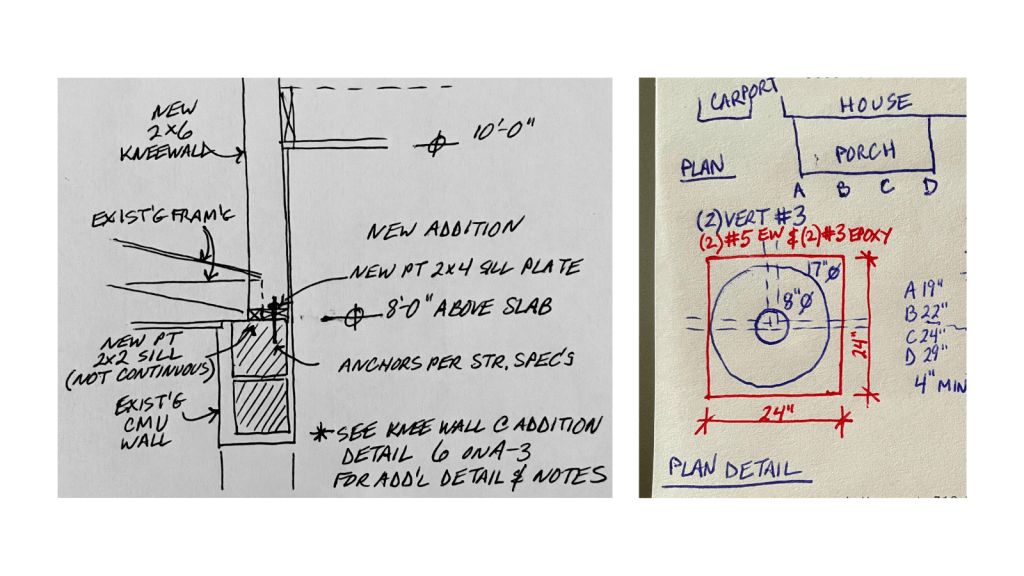 NEW
2x6
KNEEWALL
10'-0"
EXIST'G FRAM'G
NEW ADDITION
NEW PT 2x4 SILL PLATE
8'-0" ABOVE SLAB
NEW PT
2x2 SILL
(NOT CONTINUOUS)
ANCHORS PER STR. SPEC'S
EXIST'G
CMU
WALL
*SEE KNEE WALL C ADDITION
DETAIL 6 ON A-3
FOR ADD'L DETAIL & NOTES
CARPORT
HOUSE
PORCH
PLAN
A B C D
(2) VERT #3
(2) #5 EW & (2) #3 EPOXY
17"⌀
8"⌀
24"
24"
A 19"
B 22"
C 24"
D 29"
4" MIN
PLAN DETAIL